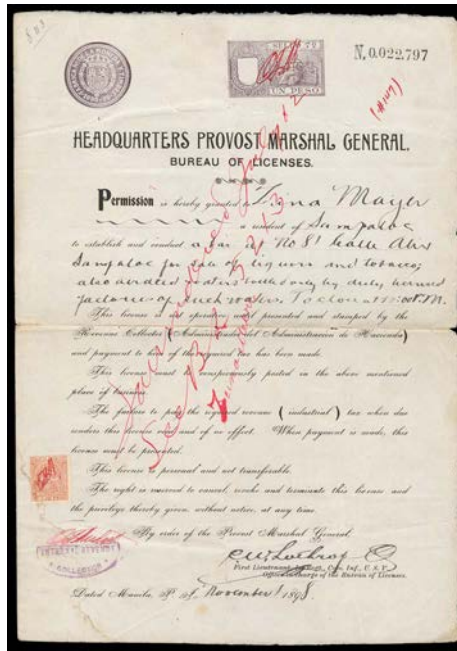 SELLO 7º
UN PESO
N. 0.022.797
HEADQUARTERS PROVOST MARSHAL GENERAL.
BUREAU OF LICENSES.
Permission is hereby granted to Mayer
a resident of Sampaloc
to establish and conduct a Bar at No 81 Calle
Sampaloc for sale of liquors and tobacco;
also aerated waters only by duly licensed
factories of such waters. To close at P.M.
This license is not operative until presented and stamped by the
Revenue Collector (Administrador del Administracion de Hacienda)
and payment to him of the required tax has been made.
This license must be conspicuously posted in the above mentioned
place of business.
The failure to pay the required revenue (industrial) tax when due
renders this license void and of no effect. When payment is made, this
license must be presented.
This license is personal and not transferable.
The right is reserved to cancel, revoke and terminate this license and
the privilege thereby given, without notice, at any time.
By order of the Provost Marshal General,
INTERNAL REVENUE
COLLECTOR
First Lieutenant, Inf., U. S. V.
Officer in charge of the Bureau of Licenses.
Dated Manila, P. I., November 1898.
Surrendered
See B.L.